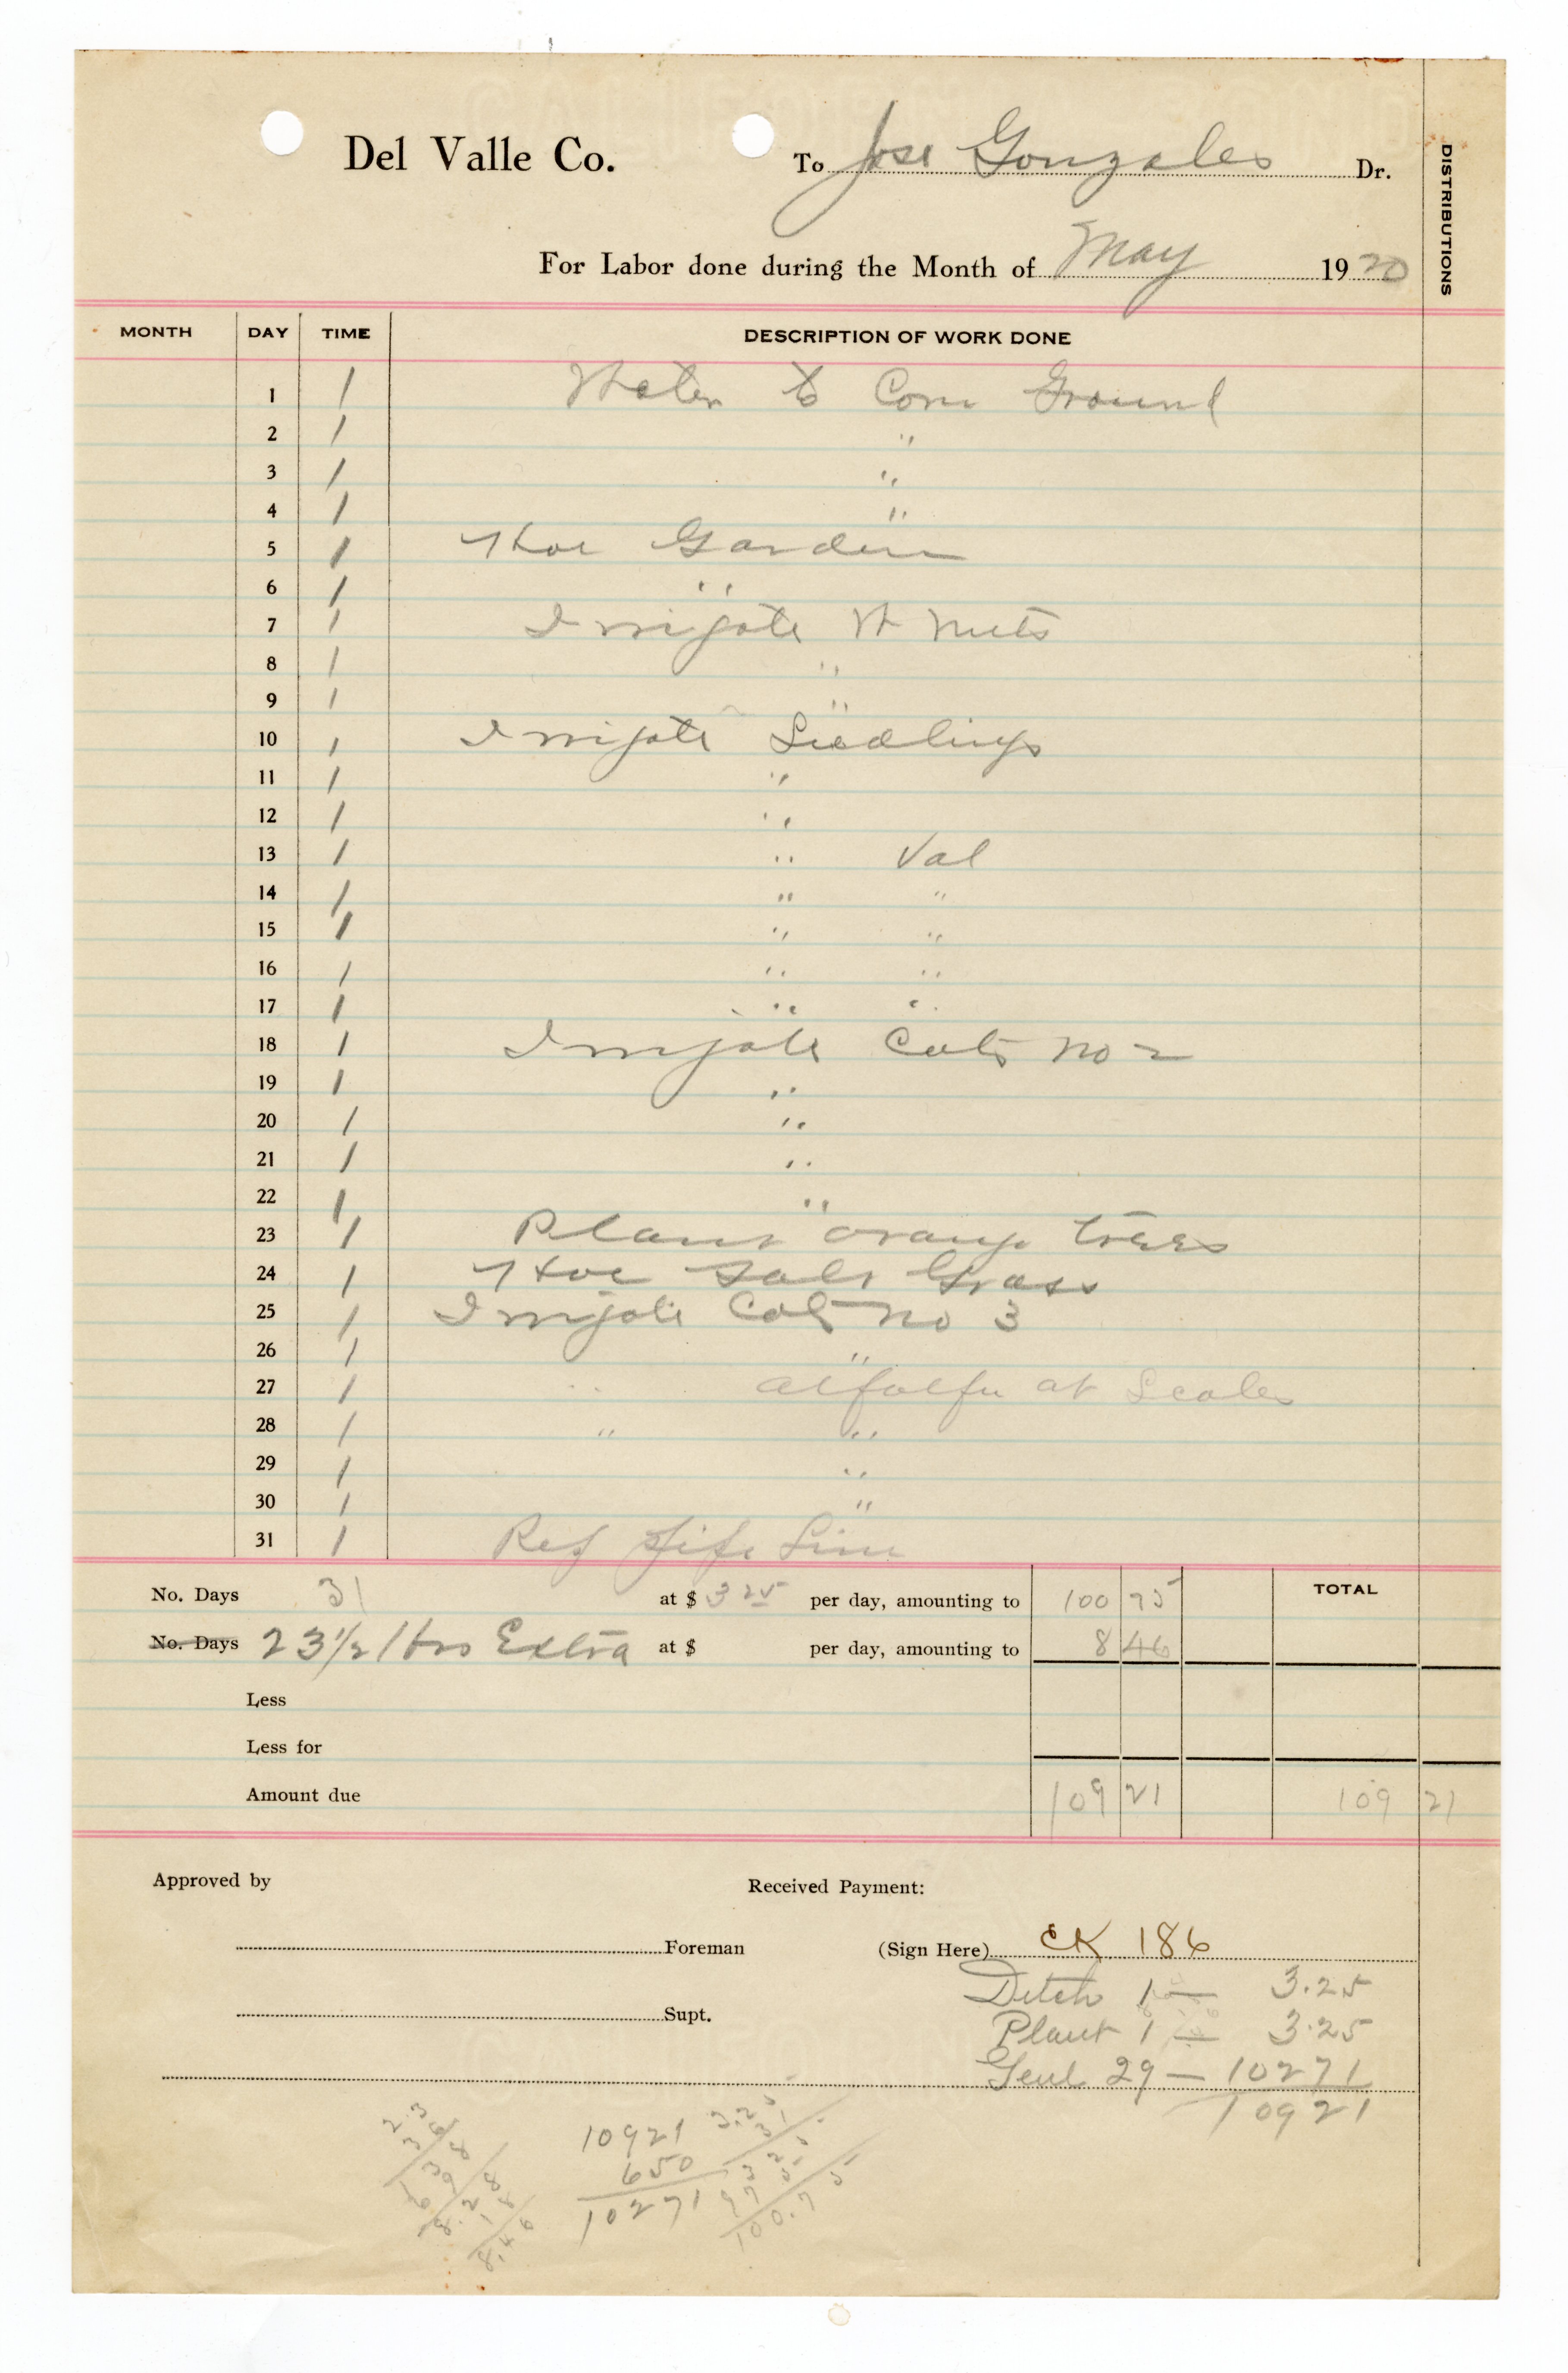 Del Valle Co. To Jose Gonzales Dr.
DISTRIBUTIONS
For Labor done during the Month of May 1920
MONTH DAY TIME DESCRIPTION OF WORK DONE
1 1 Water to Corn Ground
2 1 "
3 1 "
4 1 "
5 1 Hoe Garden
6 1 "
7 1 Irrigate W Nuts
8 1 "
9 1 "
10 1 Irrigate Seedlings
11 1 "
12 1 "
13 1 " Val
14 1 " "
15 1 " "
16 1 " "
17 1 " "
18 1 Irrigate Cots no 2
19 1 "
20 1 "
21 1 "
22 1 "
23 1 Plant orange trees
24 1 Hoe Salt Grass
25 1 Irrigate Cots no 3
26 1 "
27 1 " alfalfa at Scales
28 1 " "
29 1 "
30 1 "
31 1 Line
No. Days 31 at $ 3 25 per day, amounting to 100 75 TOTAL
No. Days 23 1/2 Hrs Extra at $ per day, amounting to 8 46
Less
Less for
Amount due 109 21 109 21
Approved by Received Payment:
Foreman (Sign Here) CK 186
Ditch 1 — 3.25
Supt.
Plant 1 — 3.25
Genl 29 — 10271
10921
10921
650
10271
3.25
31
325
975
100.75
23
36
8.28
18
8.46